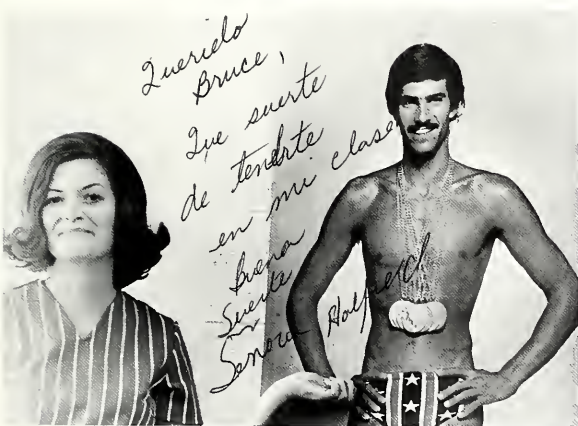 Querido
Bruce,
Que suerte
de tenerte
en mi clase
Buena
Suerte
Senora